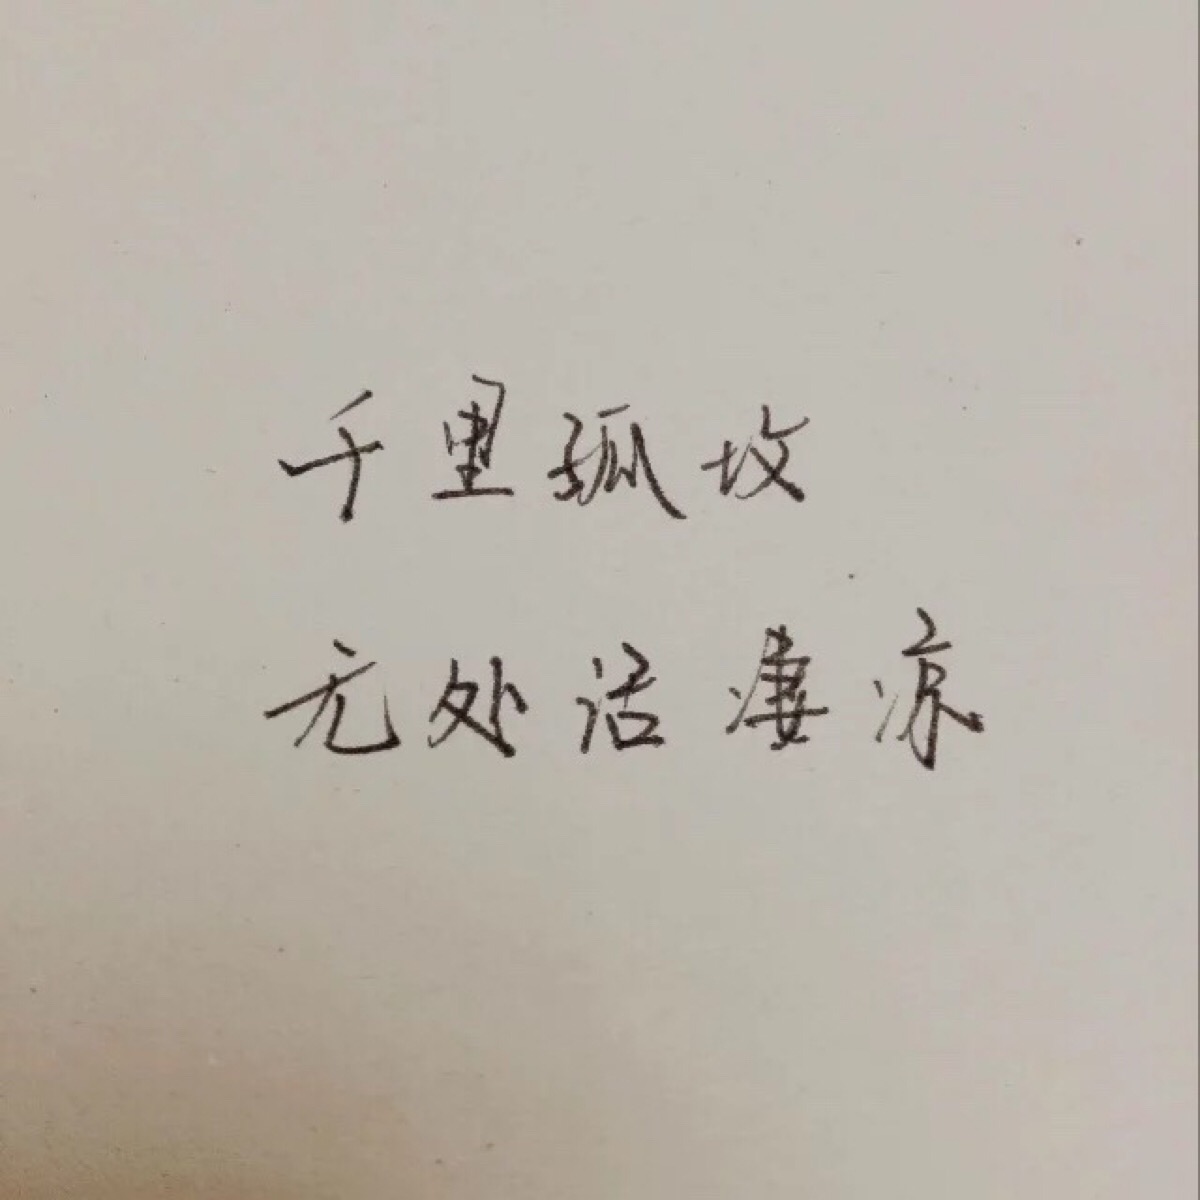 千里孤坟
无处话凄凉